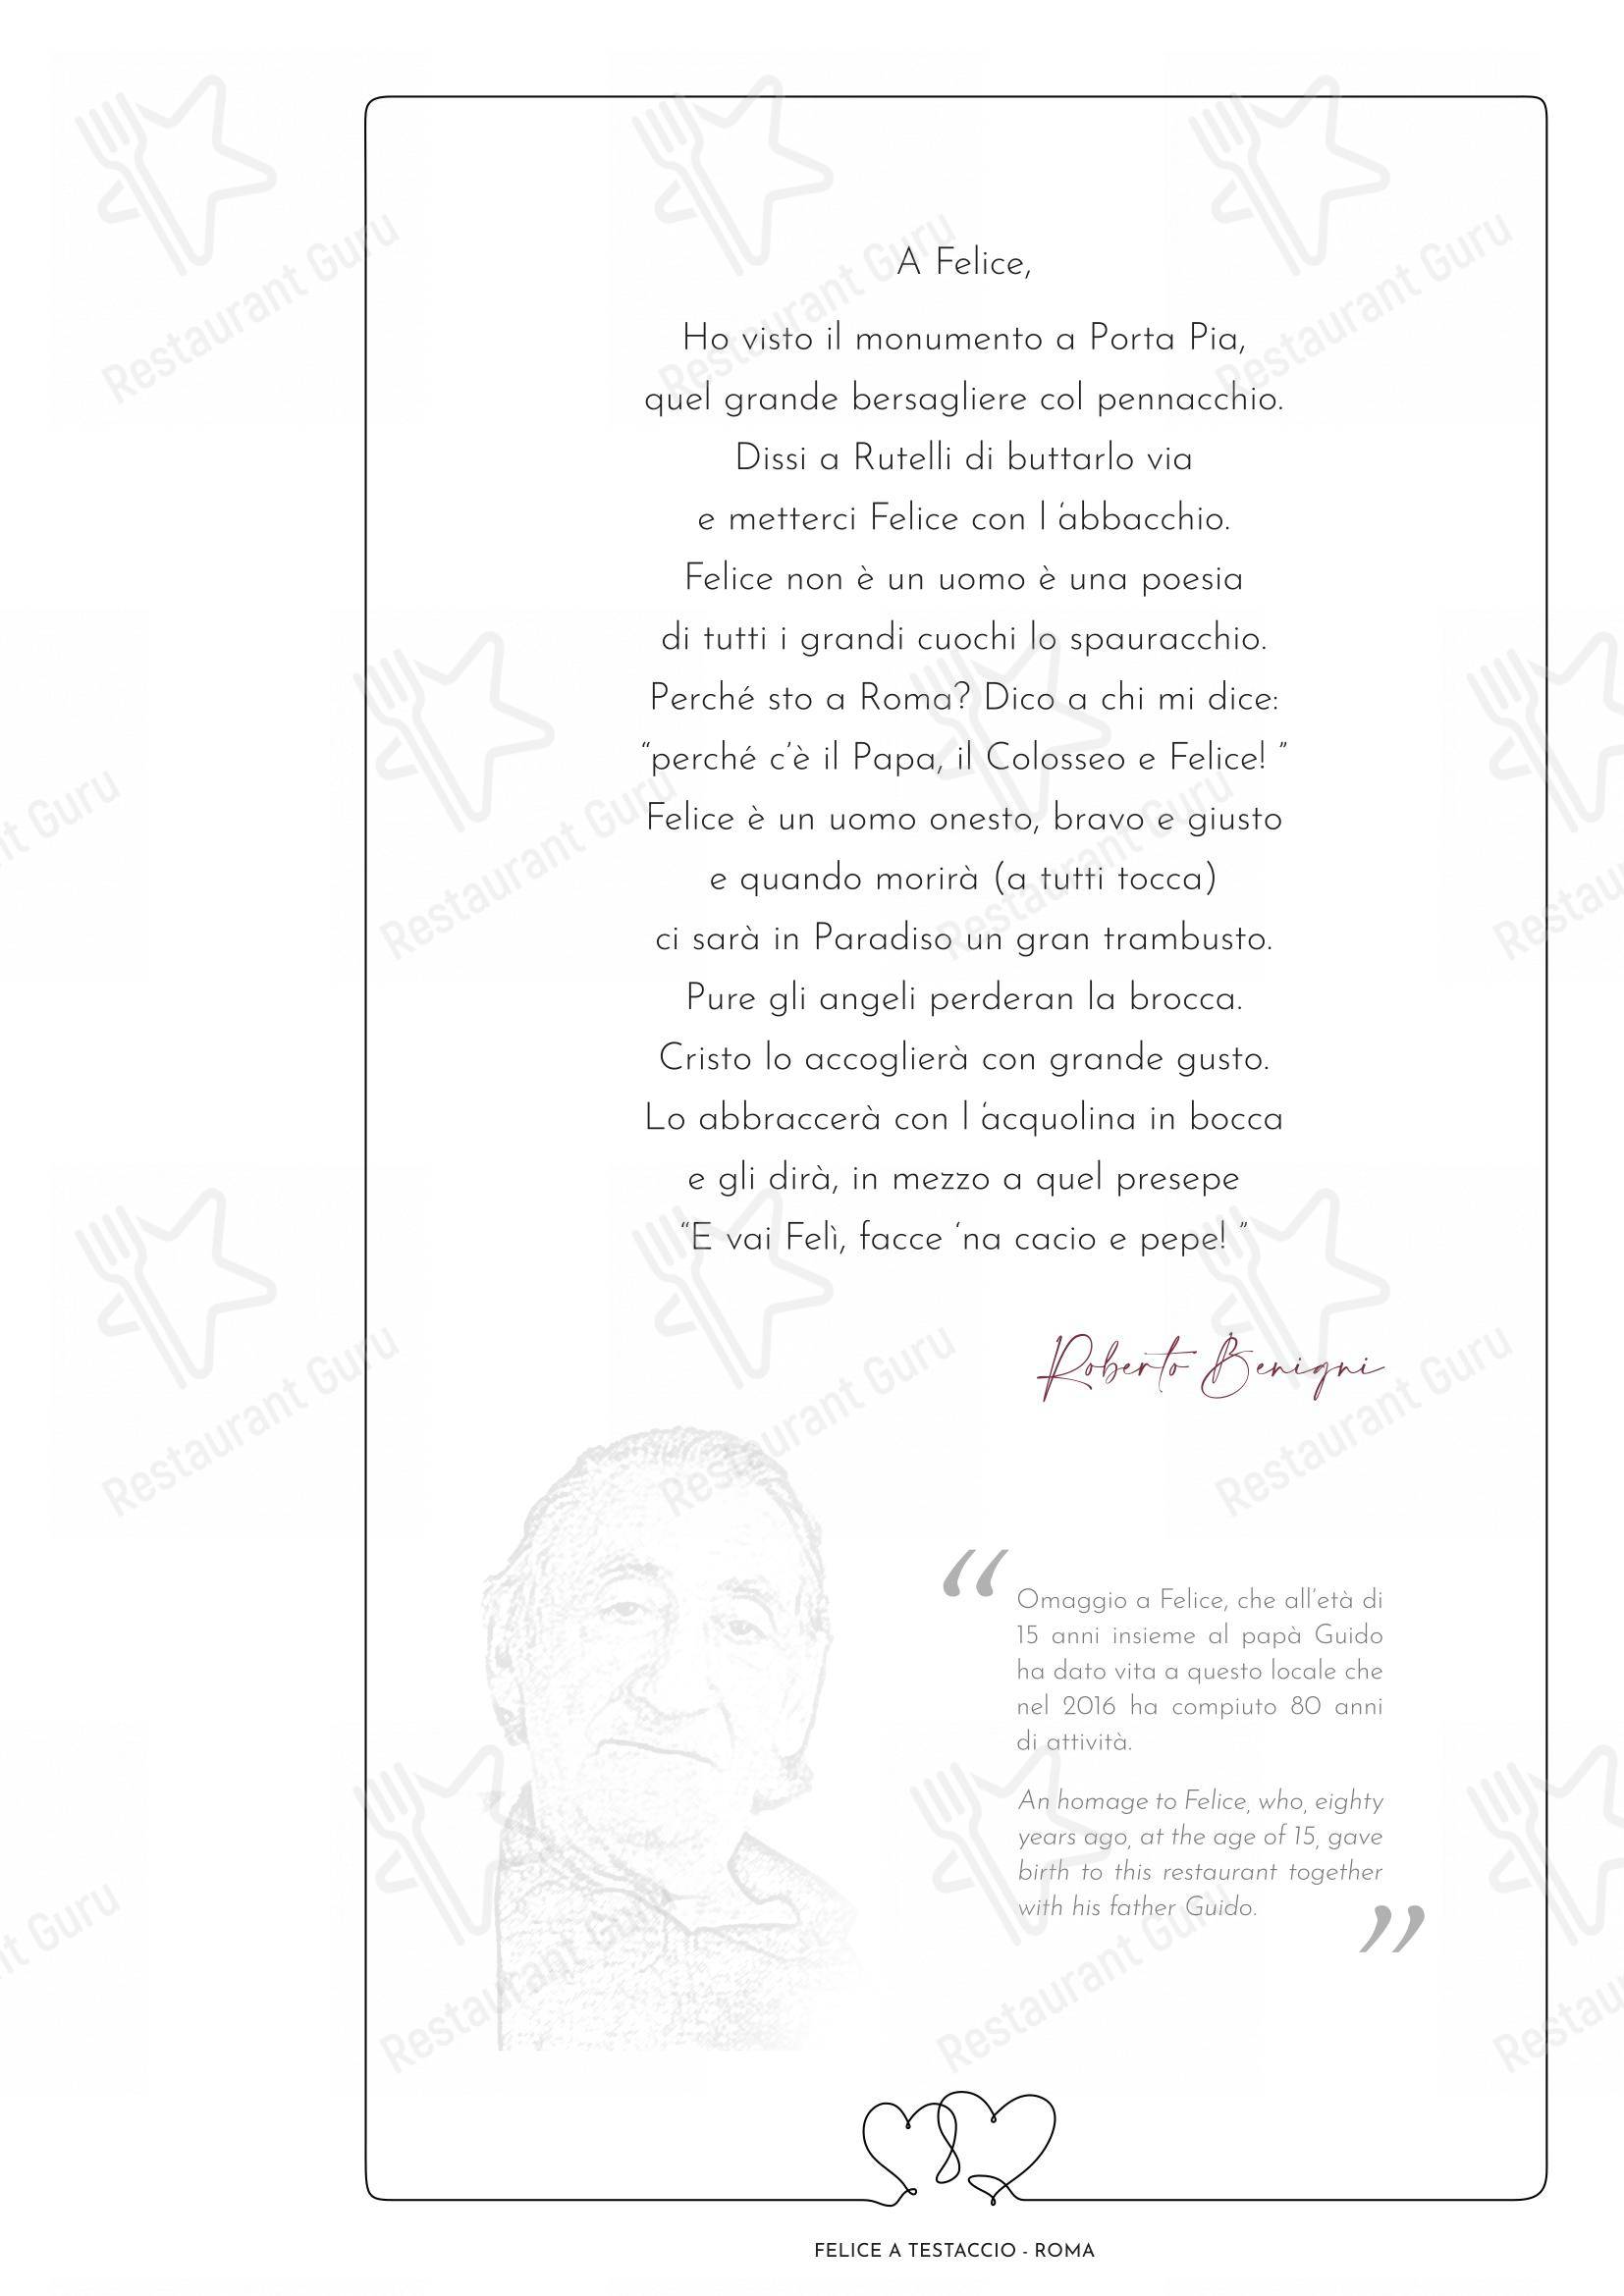 A Felice,
Ho visto il monumento a Porta Pia,
quel grande bersagliere col pennacchio.
Dissi a Rutelli di buttarlo via
e metterci Felice con l ‘abbacchio.
Felice non è un uomo è una poesia
di tutti i grandi cuochi lo spauracchio.
Perché sto a Roma? Dico a chi mi dice:
“perché c’è il Papa, il Colosseo e Felice! ”
Felice è un uomo onesto, bravo e giusto
e quando morirà (a tutti tocca)
ci sarà in Paradiso un gran trambusto.
Pure gli angeli perderan la brocca.
Cristo lo accoglierà con grande gusto.
Lo abbraccerà con l ‘acquolina in bocca
e gli dirà, in mezzo a quel presepe
“E vai Felì, facce ‘na cacio e pepe! ”
Roberto Benigni
“
Omaggio a Felice, che all’età di
15 anni insieme al papà Guido
ha dato vita a questo locale che
nel 2016 ha compiuto 80 anni
di attività.
An homage to Felice, who, eighty
years ago, at the age of 15, gave
birth to this restaurant together
with his father Guido.
”
FELICE A TESTACCIO - ROMA
Restaurant Guru
Restaurant Guru
Restaurant Guru
Restaurant Guru
Restaurant Guru
Restaurant Guru
Restaurant Guru
Restaurant Guru
Restaurant Guru
Restaurant Guru